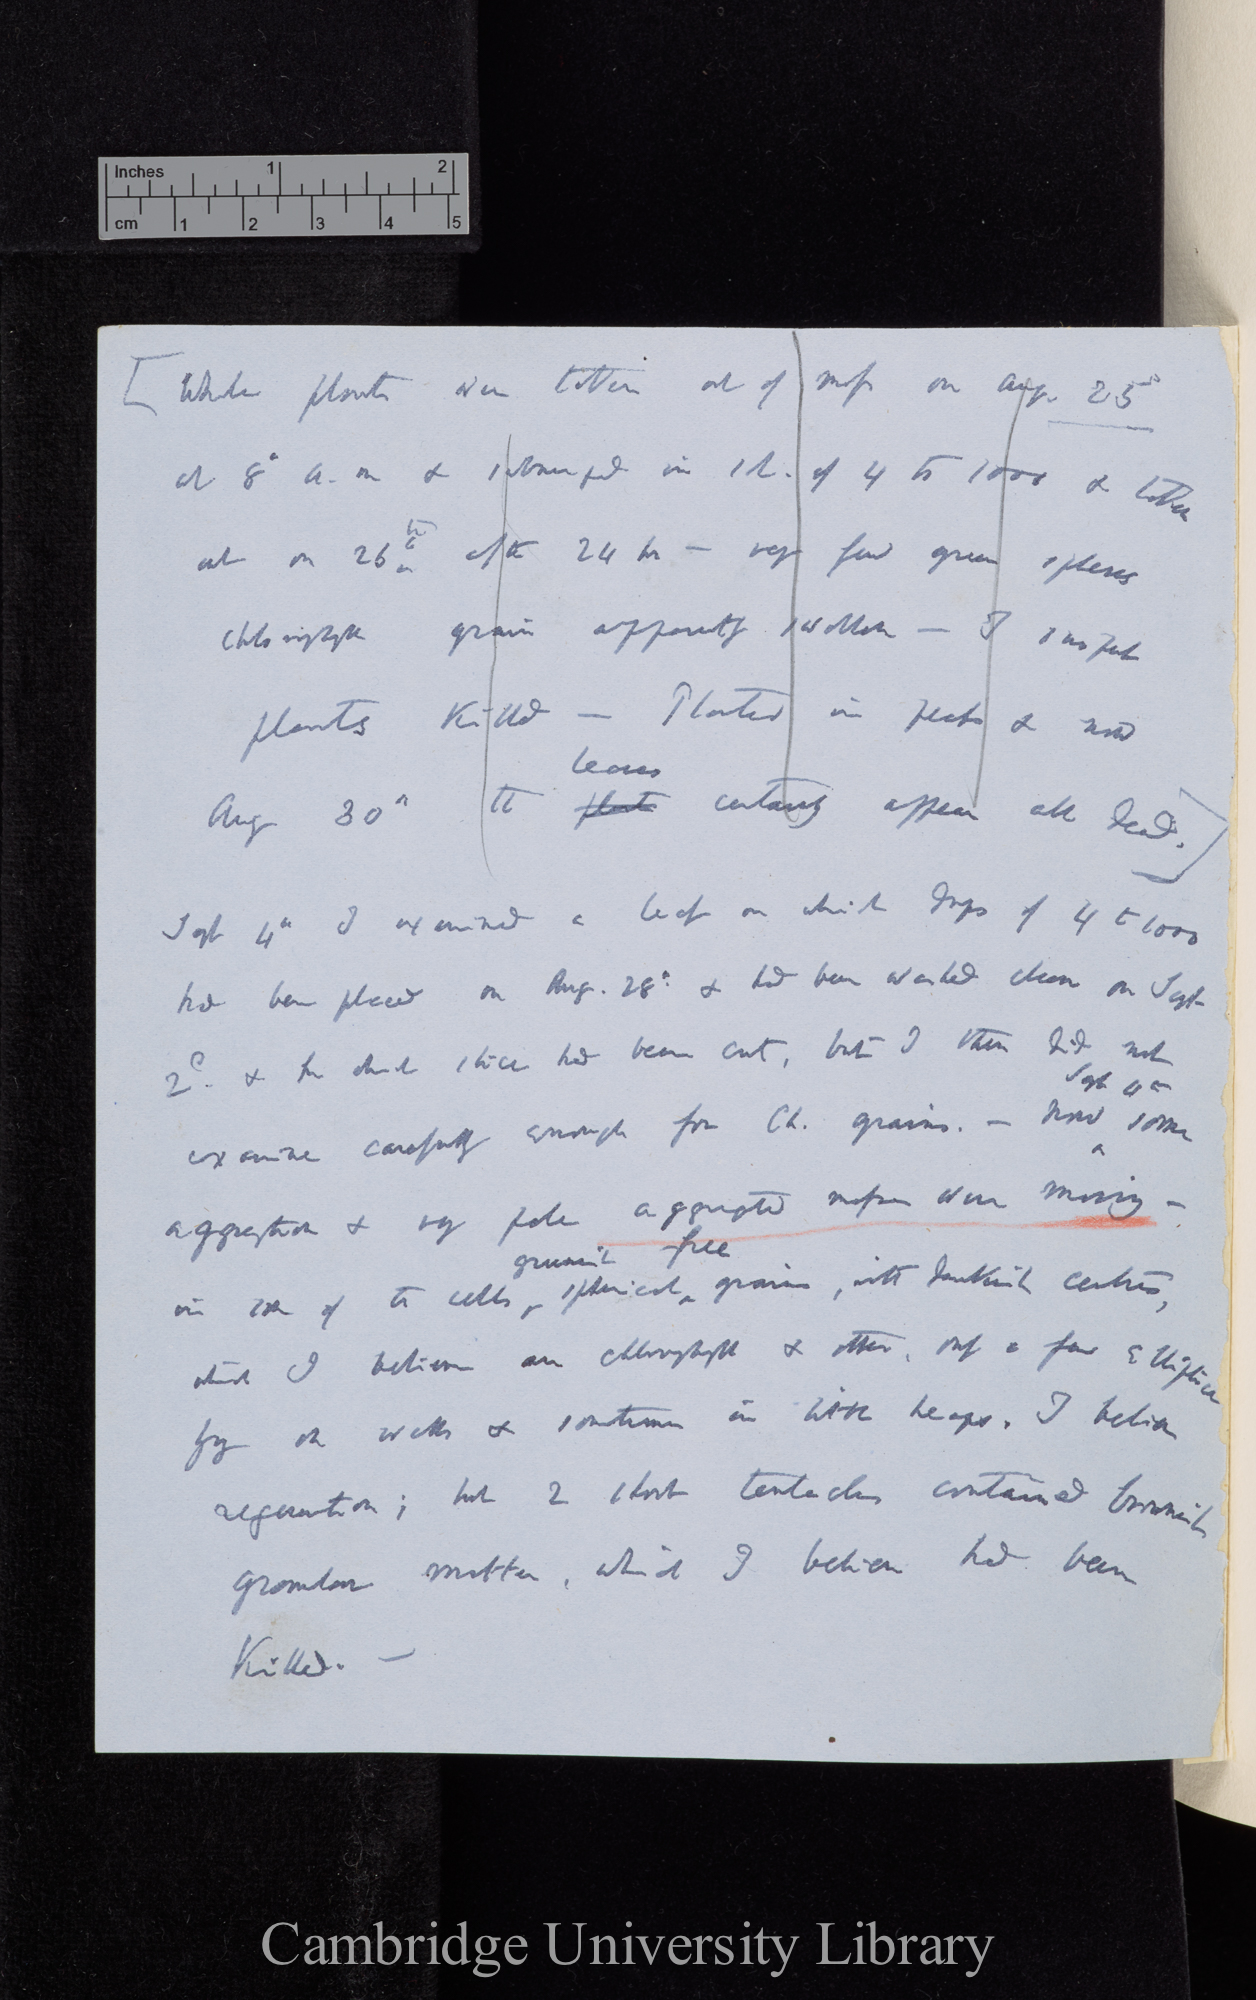 Inches 1 2
cm 1 2 3 4 5
[Whole plants were taken out of moss on Aug. 25th
at 8h A.m & submerged in sol. of 4 to 1000 & taken
out on 26th after 24 hr — very few green spheres
chlorophyll grain apparently swollen — I suspect
plants killed — Planted in peat & now
leaves
Aug 30th the plants certainly appear all dead.]
Sept 4th I examined a leaf on which drops of 4 to 1000
had been placed on Aug. 28th & had been washed clean on Sept
2d. & then slice had been cut, but I then did not
Sept 4th
examine carefully enough for Ch. grains. — Now some
aggregation & very pale aggregated masses were moving —
greenish free
in some of the cells, spherical grains, with darkish centres,
which I believe are chlorophyll & others, only a few elliptical
on walls & sometimes in little heaps. I believe
regeneration; but 2 short tentacles contained brownish
granular matter, which I believe had been
Killed. —
Cambridge University Library